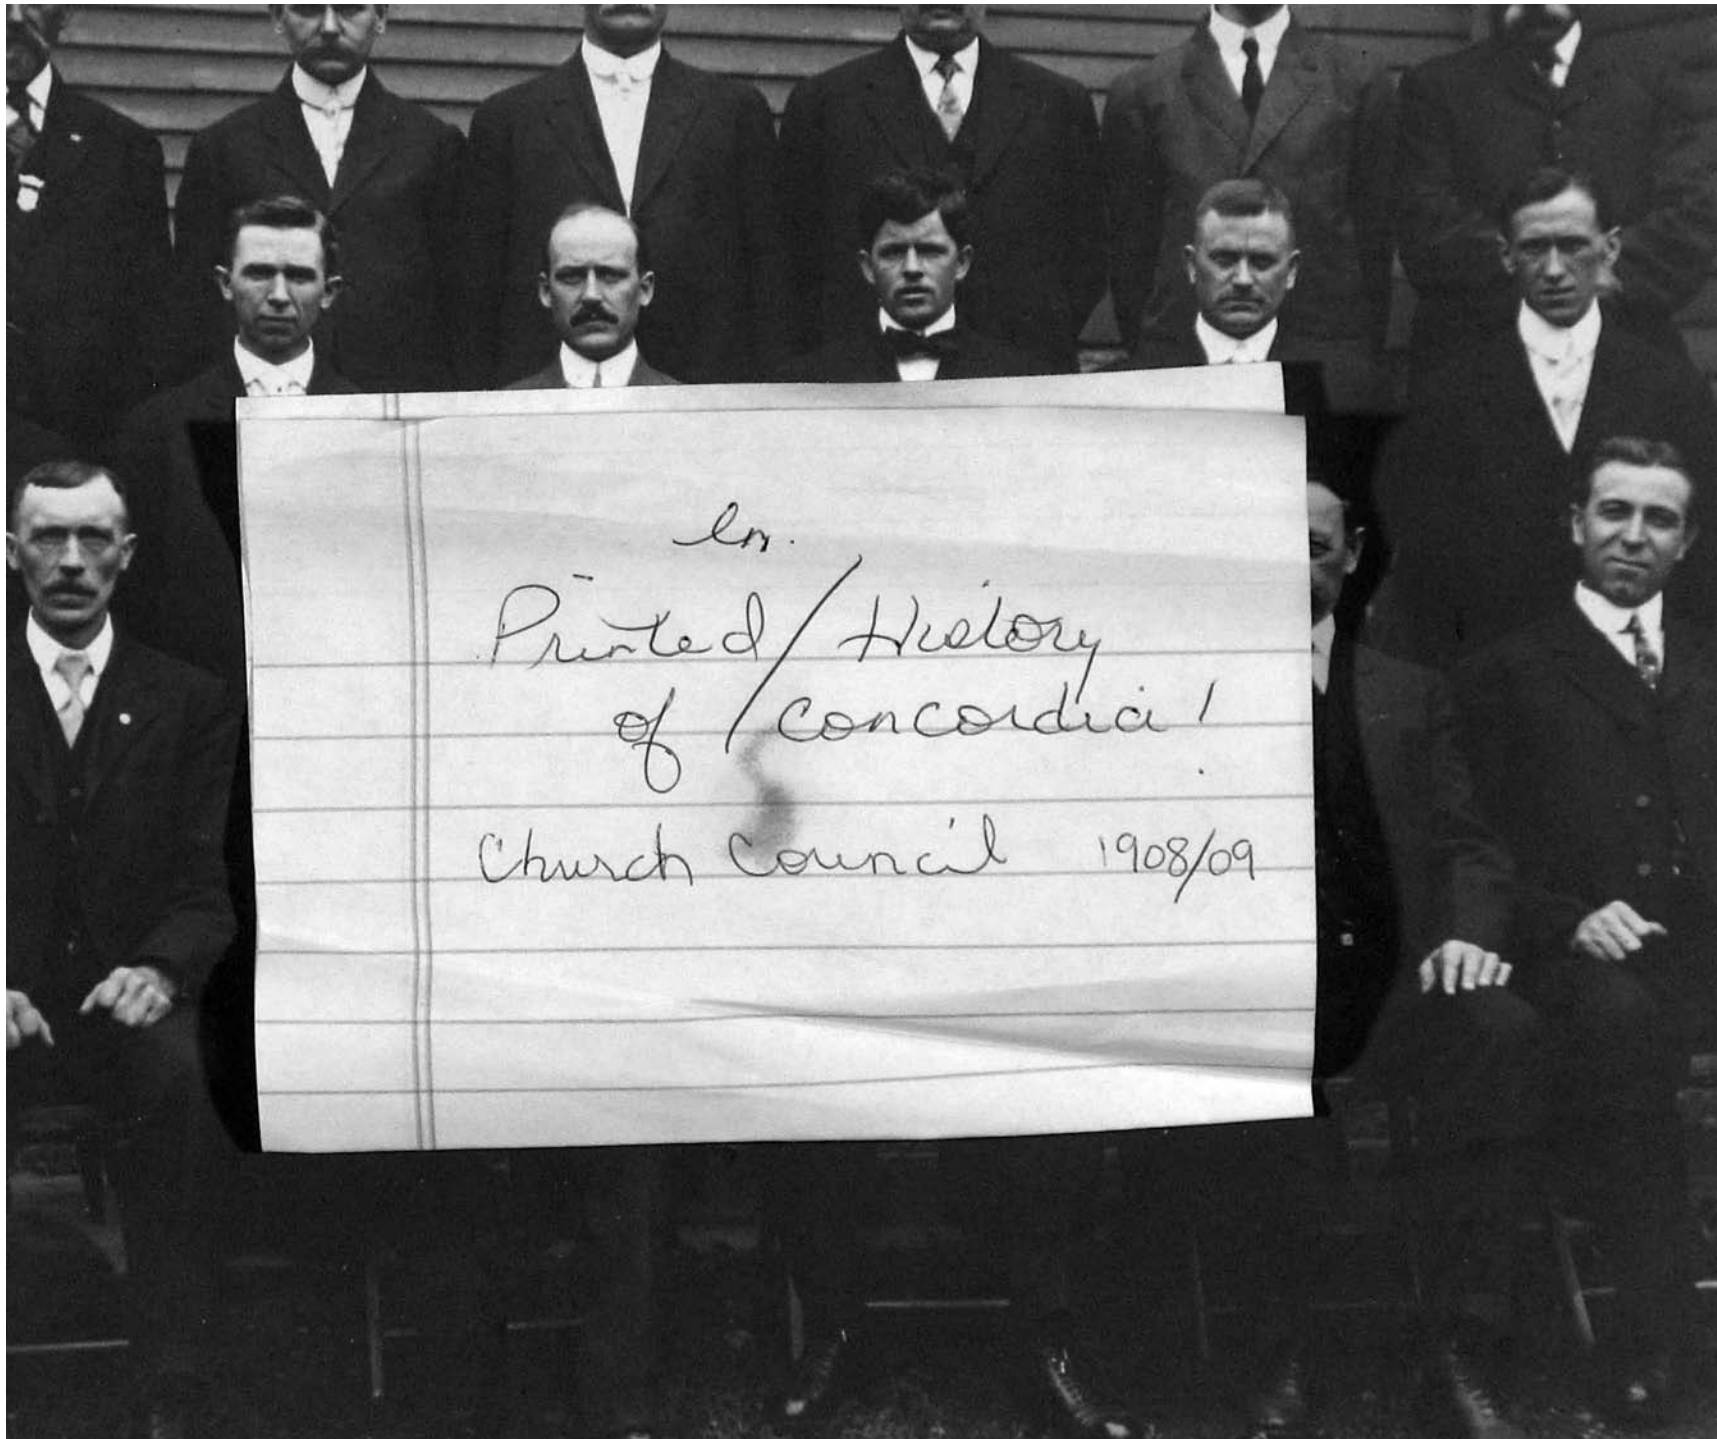 in.
Printed/History
of/Concordia!
Church Council 1908/09